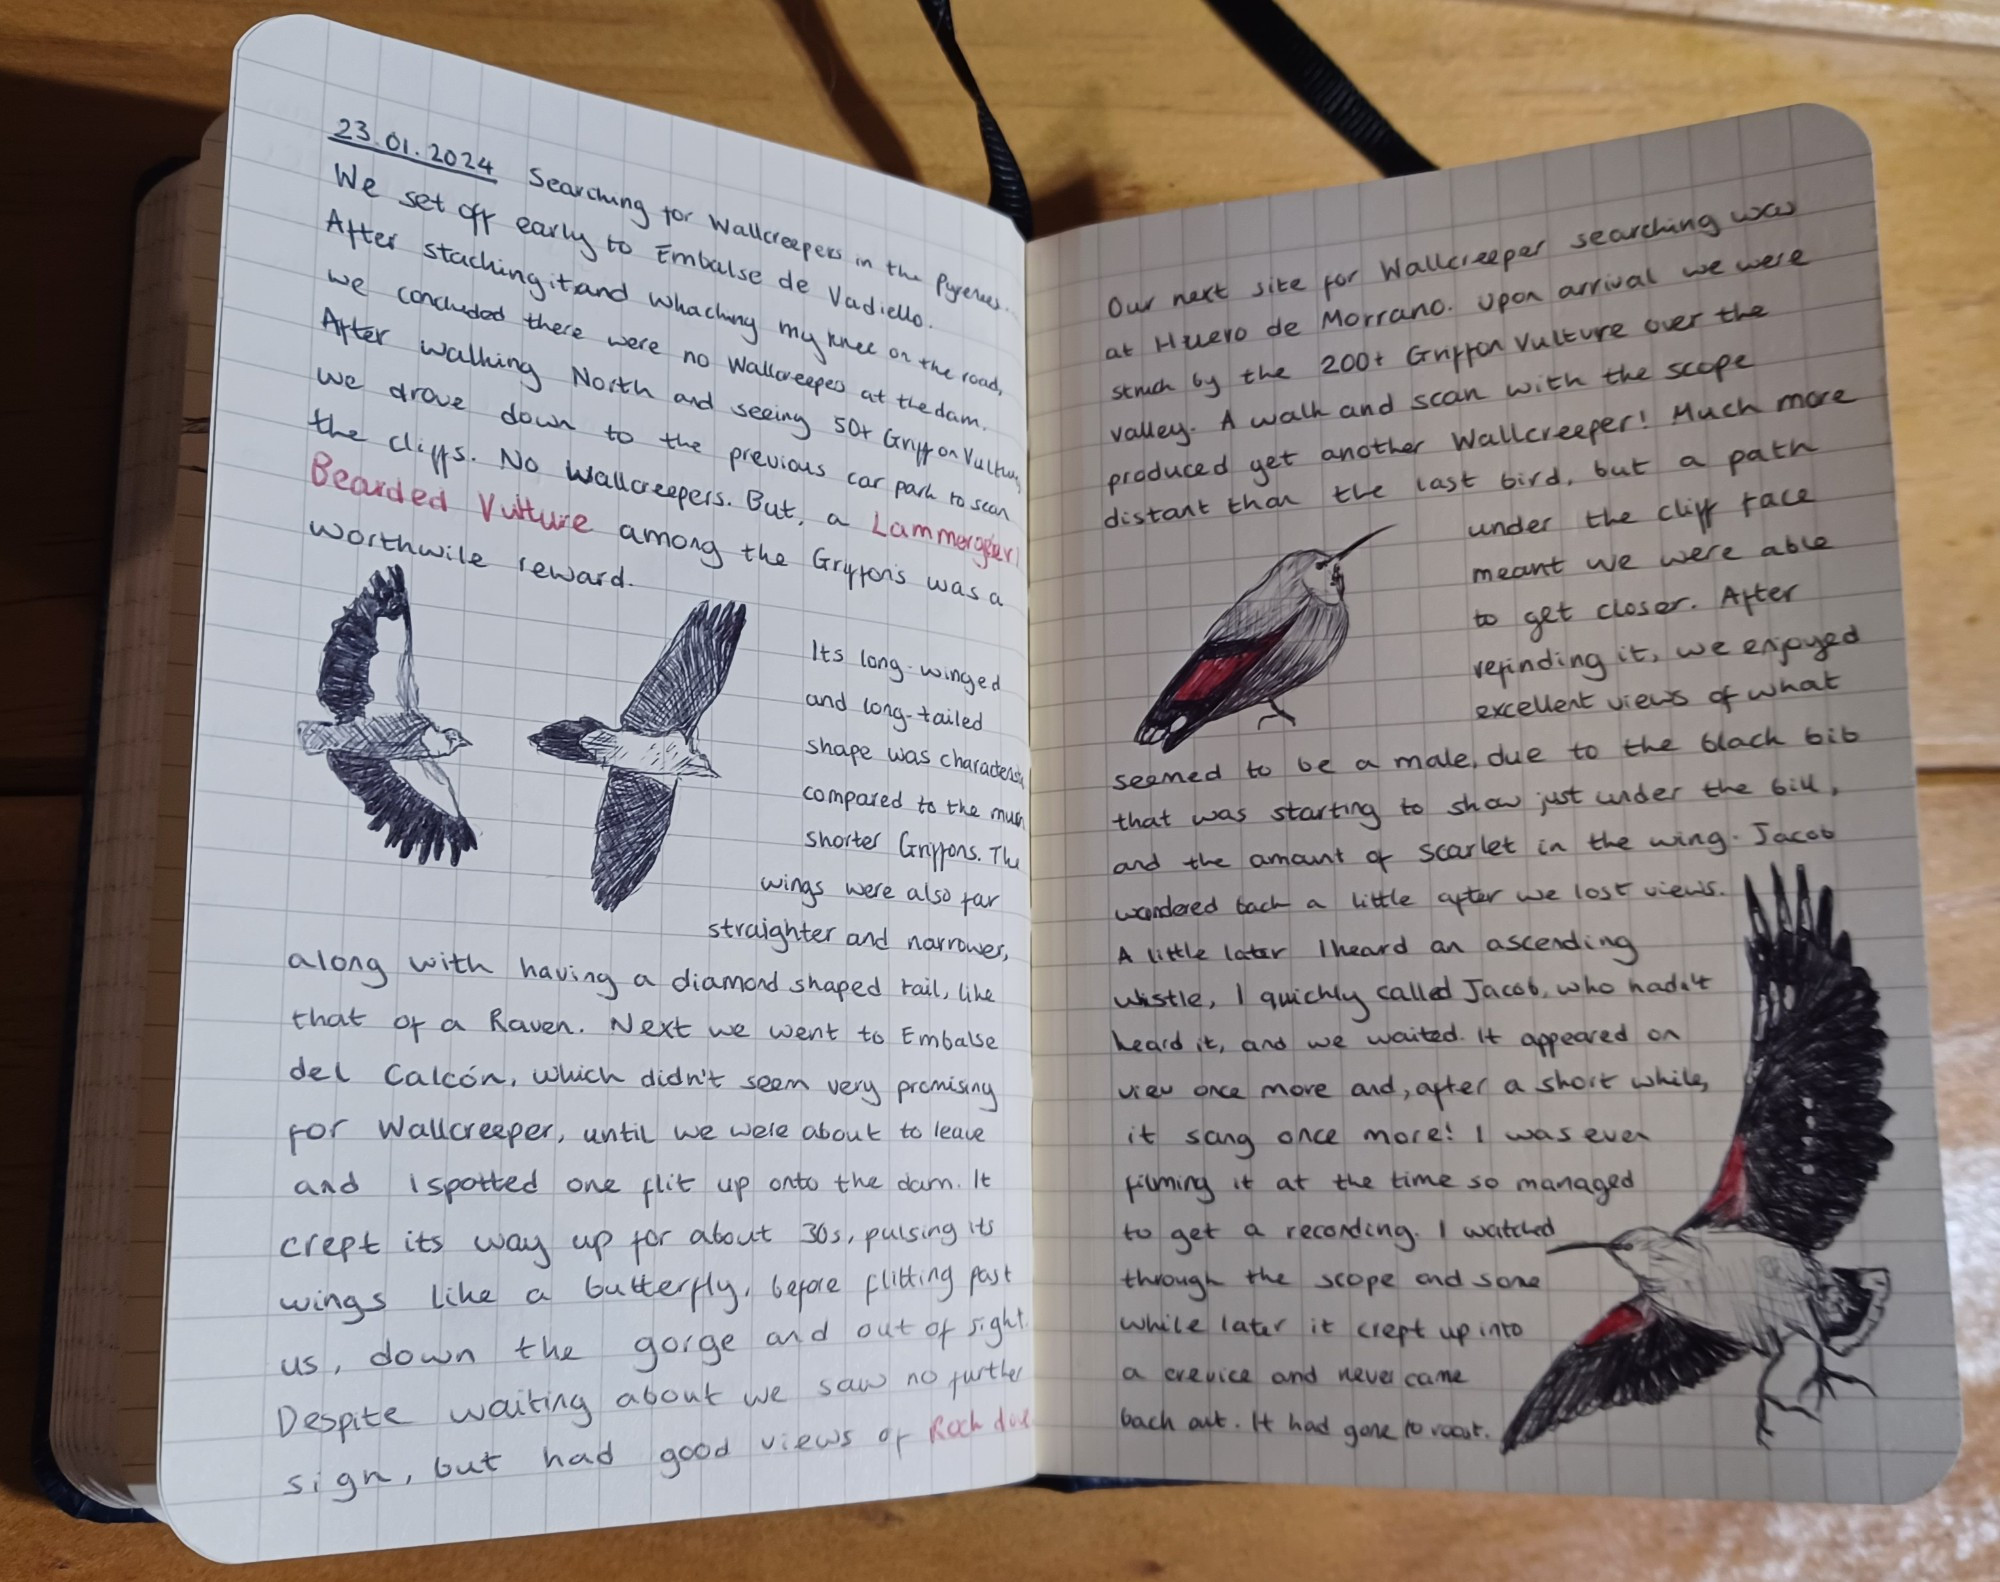 23.01.2024 Searching for Wallcreepers in the Pyrenees.
We set off early to Embalse de Vadiello.
After staching it and whaching my knee on the road,
we concluded there were no Wallcreepes at the dam.
After walking North and seeing 50+ Griffon Vulture
we drove down to the previous car park to scan
the cliffs. No Wallcreepers. But, a Lammergeier!
Bearded Vulture among the Griffon's was a
worthwile reward.
Its long-winged
and long-tailed
shape was characteristic
compared to the much
shorter Griffons. The
wings were also far
straighter and narrower,
along with having a diamond shaped tail, like
that of a Raven. Next we went to Embalse
del Calcón, which didn't seem very promising
for Wallcreeper, until we were about to leave
and I spotted one flit up onto the dam. It
crept its way up for about 30s, pulsing its
wings like a butterfly, before flitting past
us, down the gorge and out of sight.
Despite waiting about we saw no further
sign, but had good views of Rock dove
Our next site for Wallcreeper searching was
at Huevo de Morrano. Upon arrival we were
struck by the 200+ Griffon Vulture over the
valley. A walk and scan with the scope
produced yet another Wallcreeper! Much more
distant than the last bird, but a path
under the cliff face
meant we were able
to get closer. After
refinding it, we enjoyed
excellent views of what
seemed to be a male, due to the black bib
that was starting to show just under the bill,
and the amount of scarlet in the wing. Jacob
wandered back a little after we lost views.
A little later I heard an ascending
wistle, I quickly called Jacob, who hadn't
heard it, and we waited. It appeared on
view once more and, after a short while,
it sang once more! I was even
filming it at the time so managed
to get a recording. I watched
through the scope and some
while later it crept up into
a crevice and never came
back out. It had gone to roost.